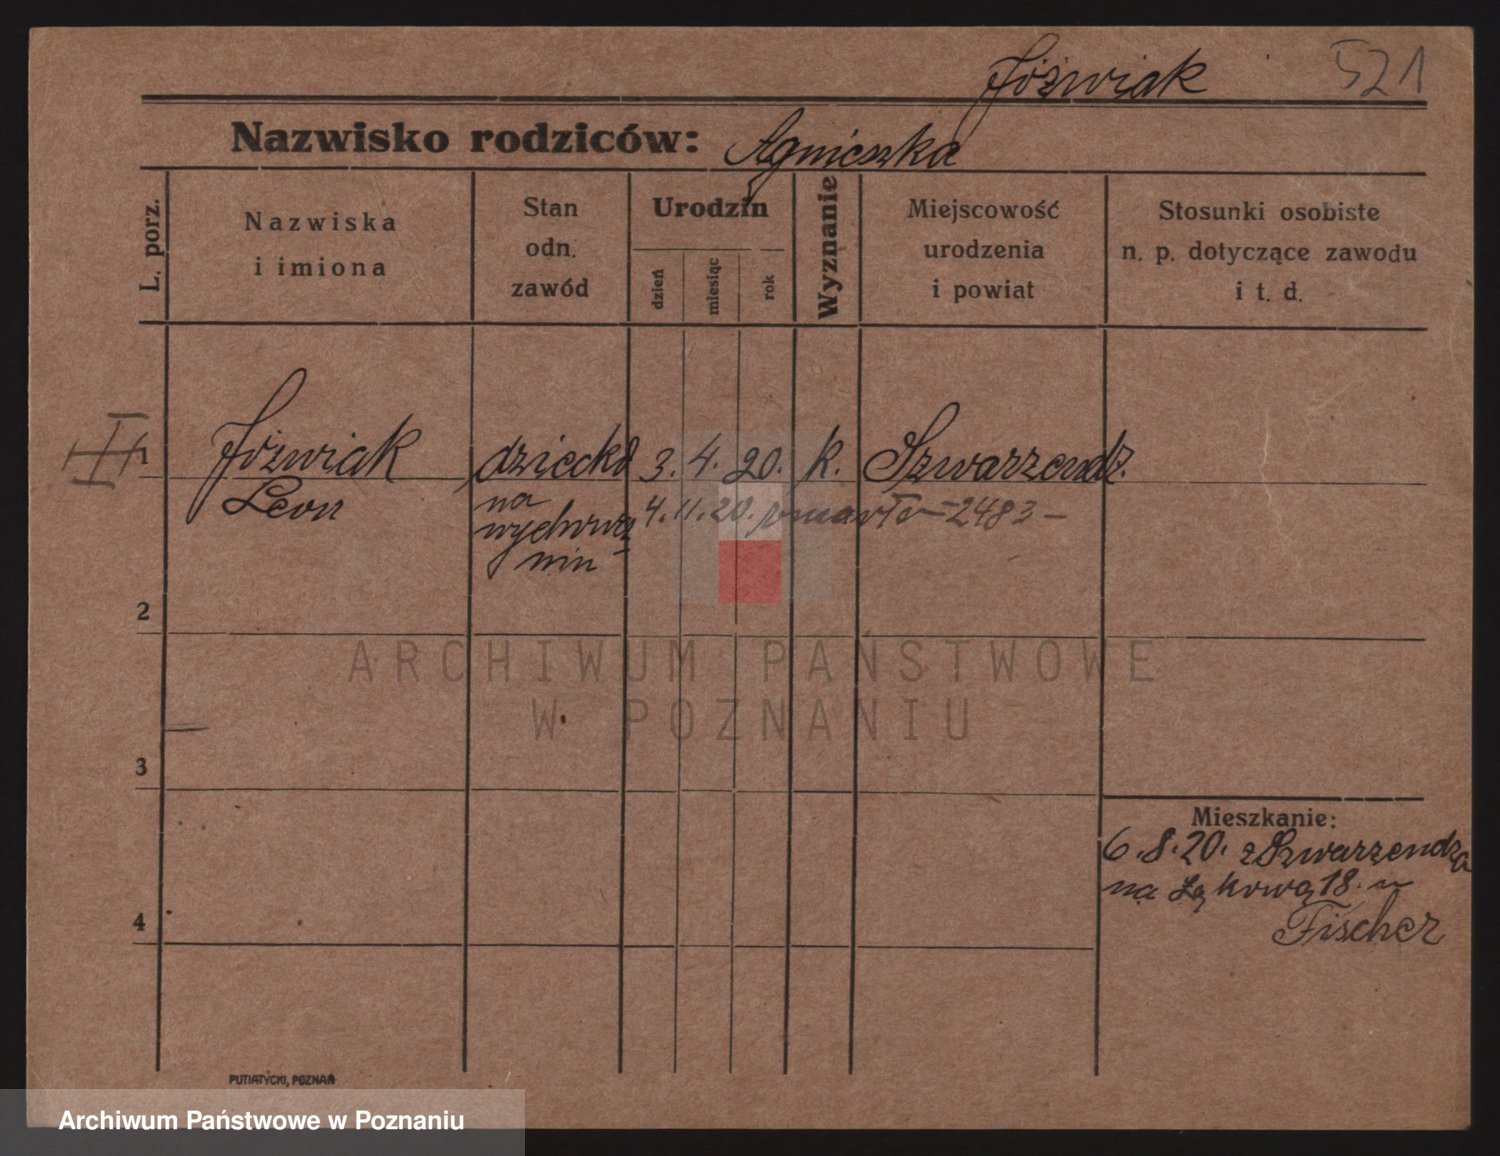 Jóźwiak 521
Nazwisko rodziców: Agnieszka
L. porz.
Nazwiska
i imiona
Stan
odn.
zawód
Urodzin
dzień
miesiąc
rok
Wyznanie
Miejscowość
urodzenia
i powiat
Stosunki osobiste
n. p. dotyczące zawodu
i t. d.
1 Jóźwiak dziecko 3. 4. 20. k. Szwarzendz.
Leon na 4. 11. 20. umarło – 2483 –
wychowa
nin
2
ARCHIWUM PAŃSTWOWE
W POZNANIU
3
Mieszkanie:
6. 8. 20. z Szwarzendza
na Łąkową 18. u
Fischer
4
PUTIATYCKI, POZNAŃ
Archiwum Państwowe w Poznaniu